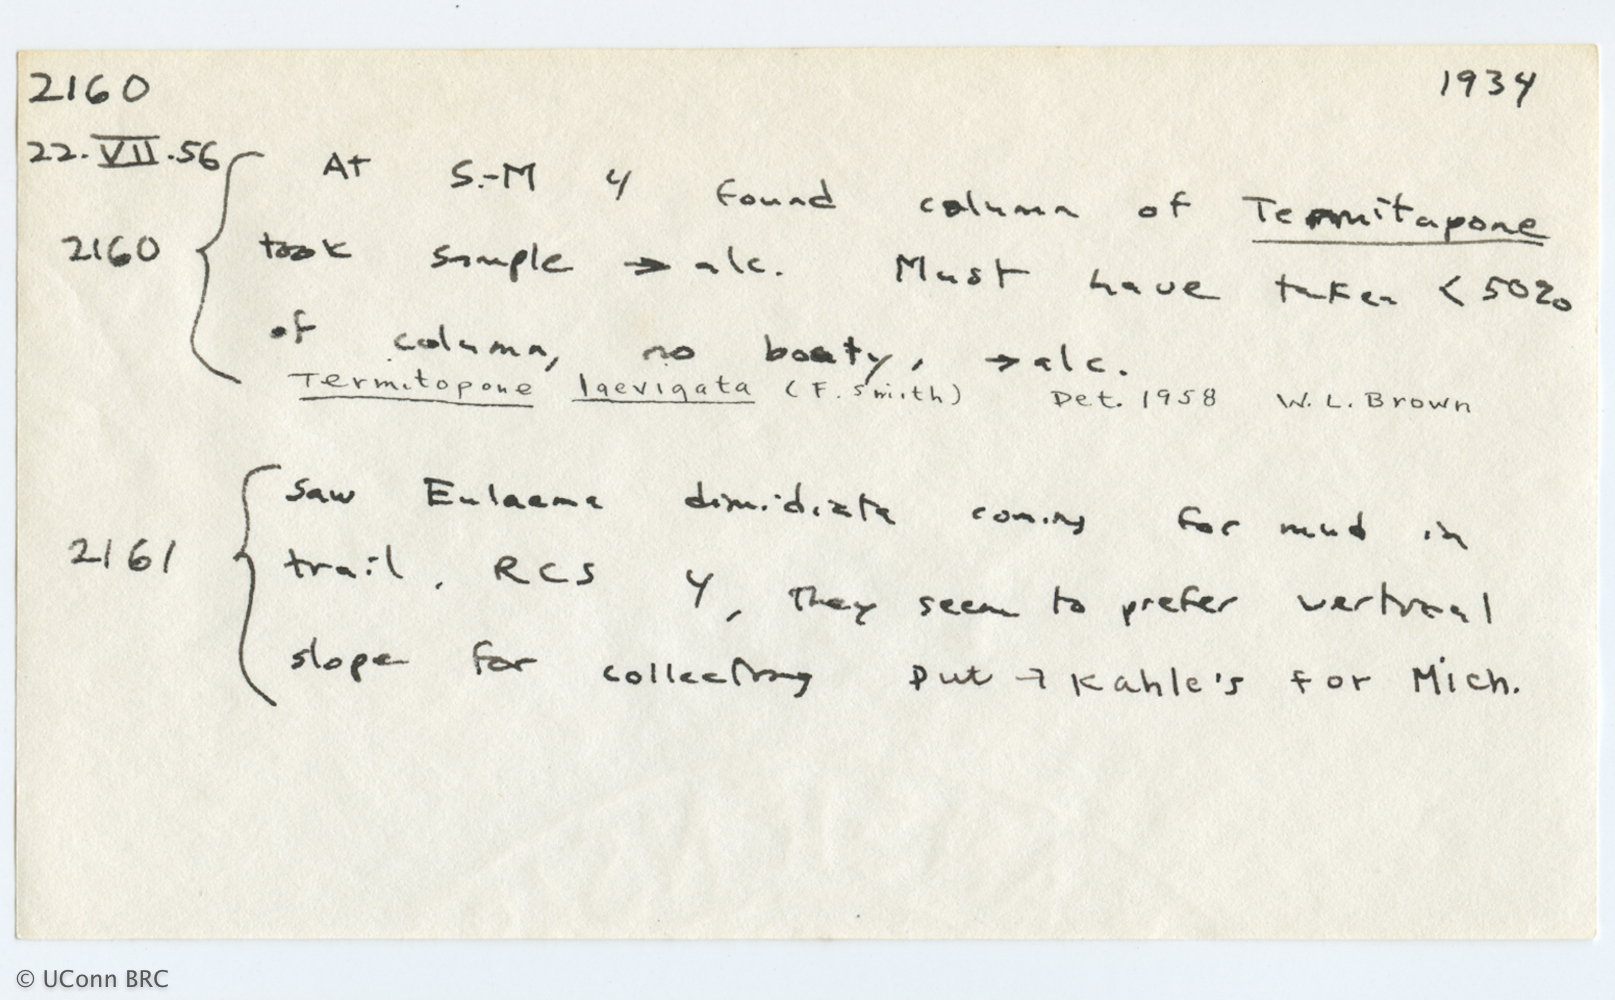 2160 1934
22.VII.56
At S.-M 4 found column of Termitapone
2160 took sample → alc. Must have taken < 50%
of column, no booty, → alc.
Termitopone laevigata (F. Smith) Det. 1958 W. L. Brown
saw Eulaema dimidiata coming for mud in
2161 trail. RCS 4, They seem to prefer vertical
slope for collecting Put → Kahle's for Mich.
© UConn BRC